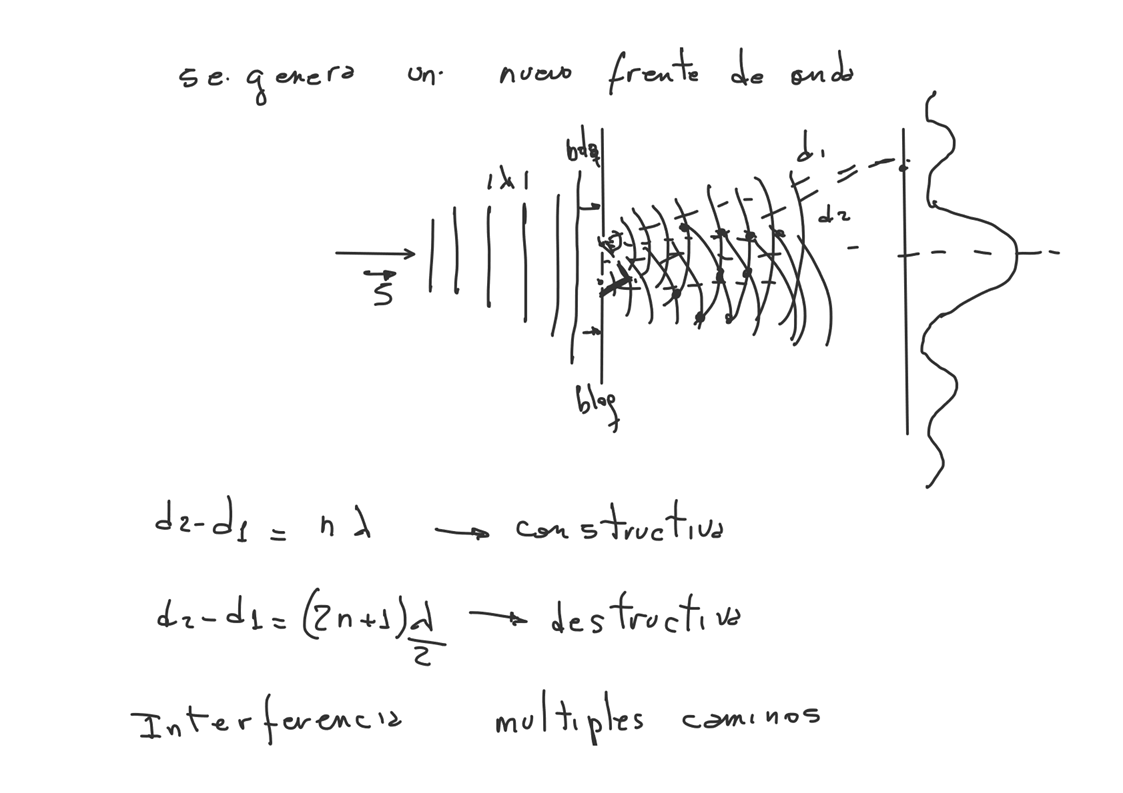 se genera un nuevo frente de onda
bdg
|λ|
d1
d2
S
bloq
d2-d1 = nλ → constructiva
d2-d1 = (2n+1)λ/2 → destructiva
Interferencia multiples caminos